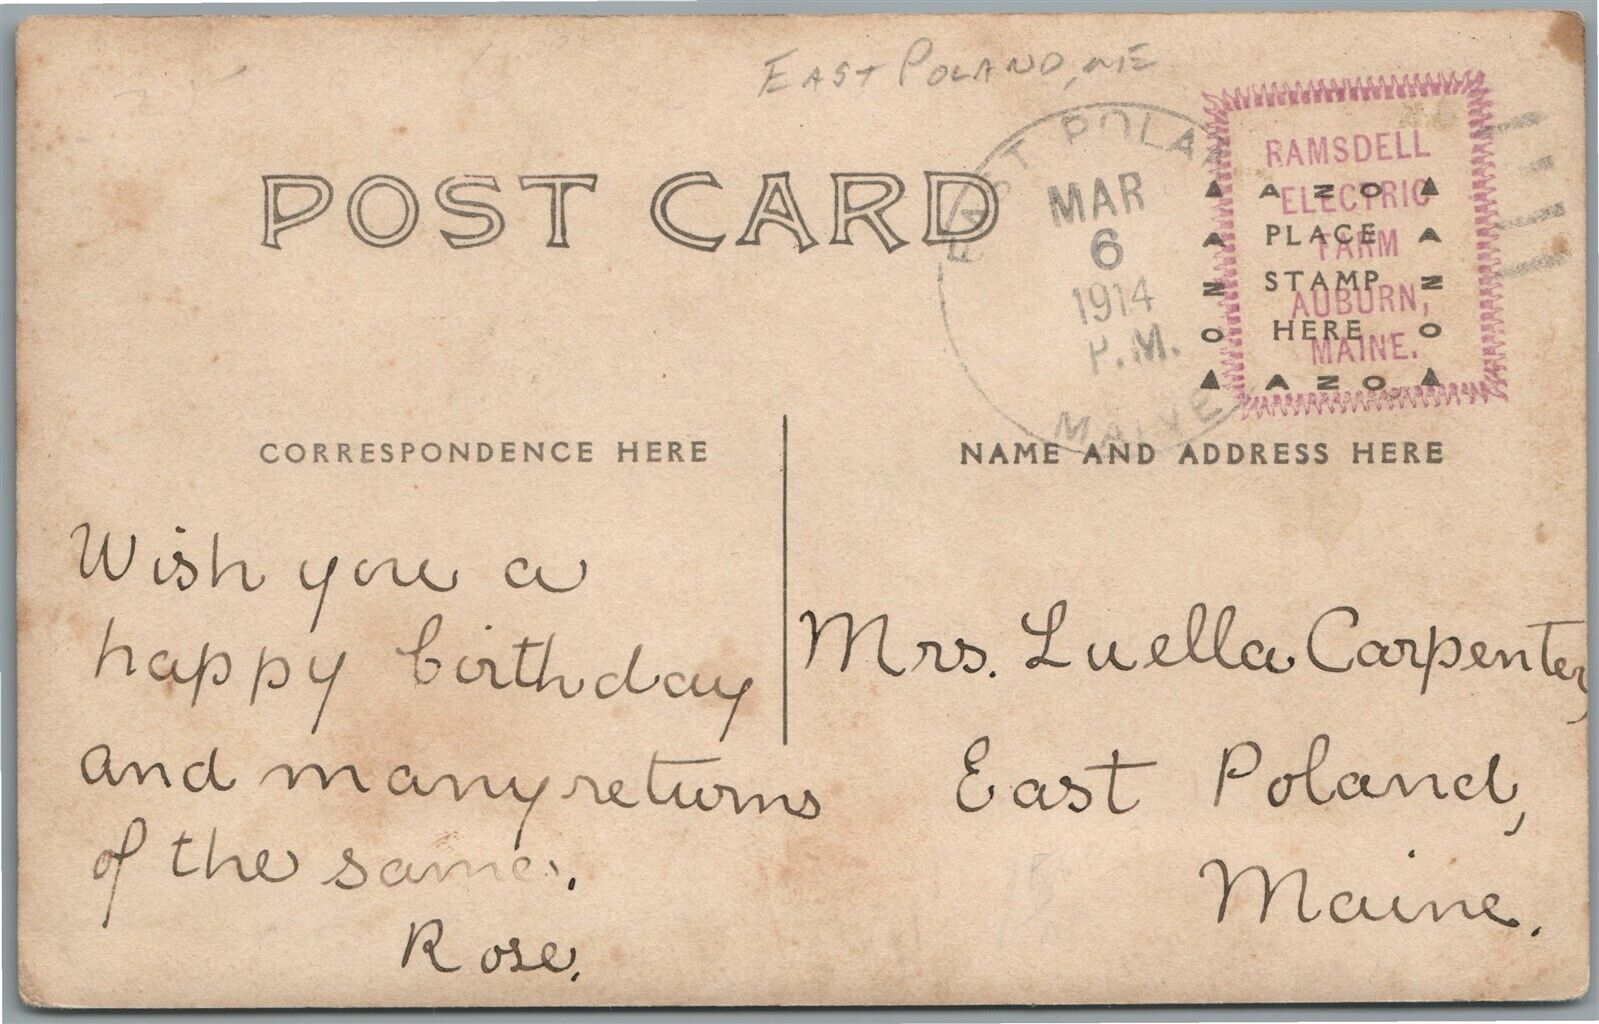 EAST POLAND, ME
POST CARD
EAST POLAND
MAR
6
1914
P.M.
MAINE
RAMSDELL
ELECTRIC
FARM
AUBURN,
MAINE.
AZO
PLACE
STAMP
HERE
AZO
AZO
AZO
CORRESPONDENCE HERE
NAME AND ADDRESS HERE
Wish you a
happy birthday
and many returns
of the same.
Rose.
Mrs. Luella Carpenter,
East Poland,
Maine.